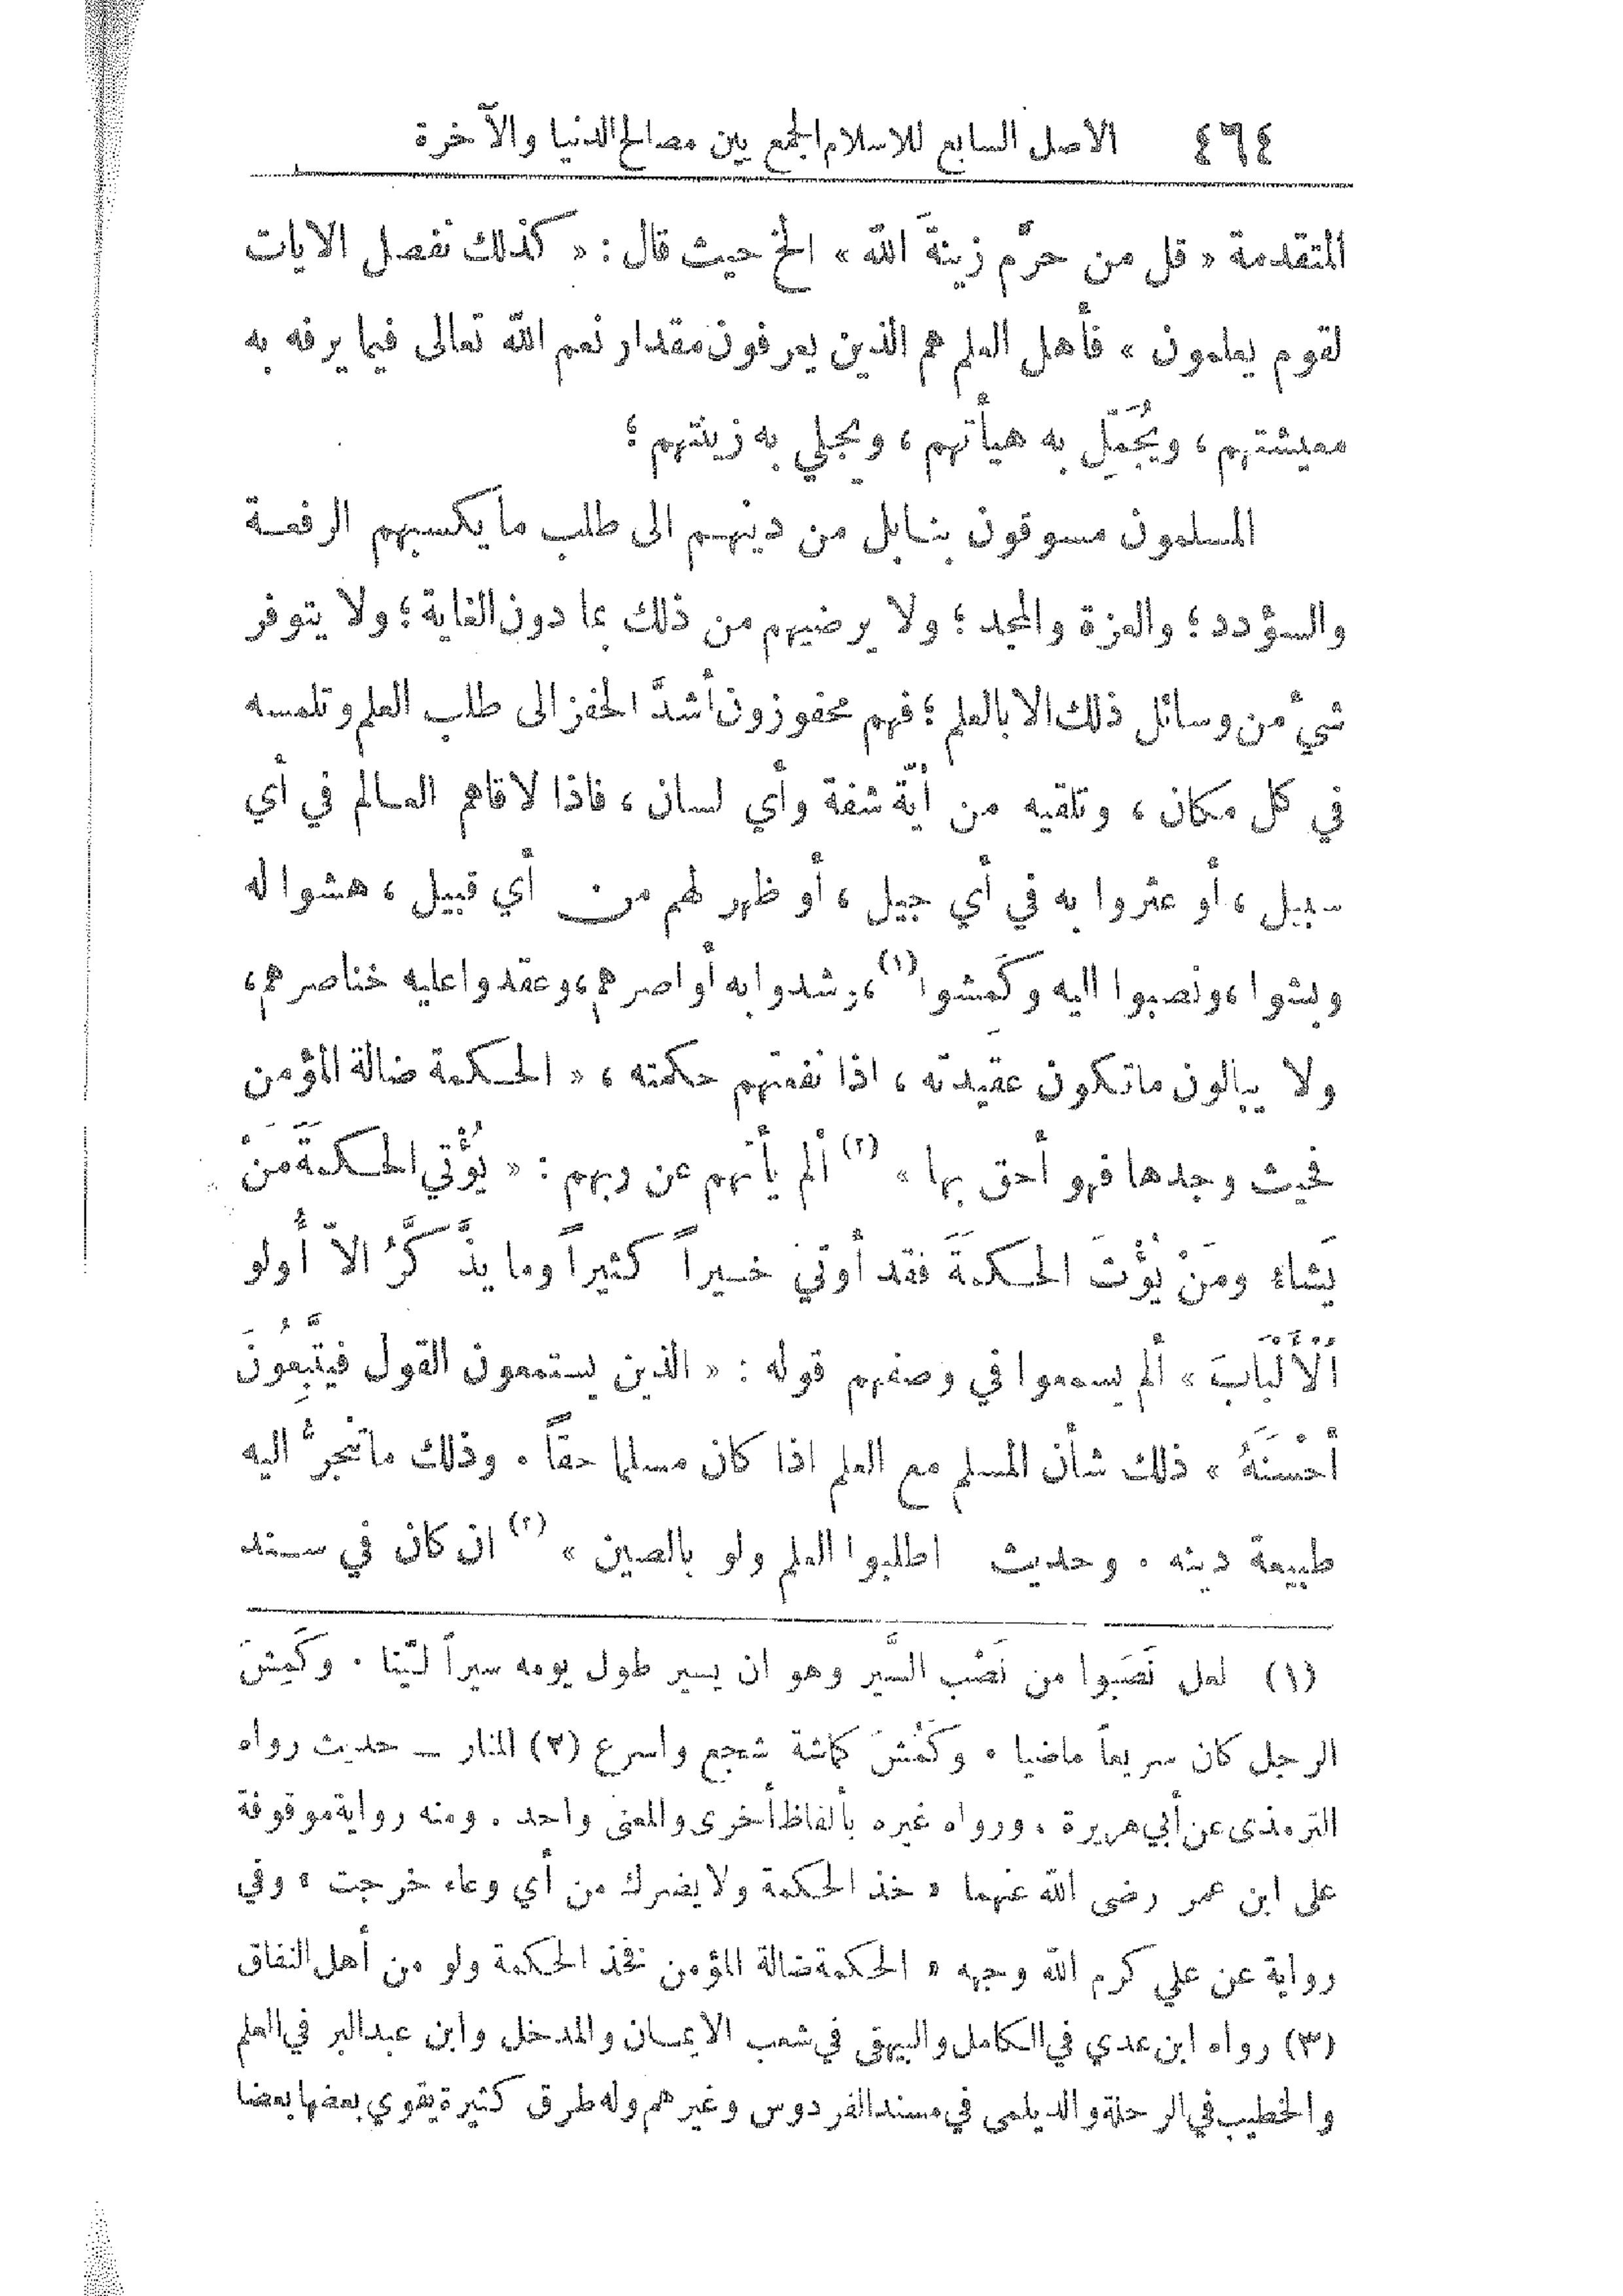 ٤٦٤ الاصل السابع للاسلام الجمع بين مصالح الدنيا والآخرة
المتقدمة « قل من حرَّم زينةَ الله » الخ حيث قال : « كذلك نفصل الايات
لقوم يعلمون » فأهل العلم هم الذين يعرفون مقدار نعم الله تعالى فيما يرفه به
معيشتهم ، ويُجَمِّل به هيأتهم ، ويجلي به زينتهم ؛
المسلمون مسوقون بنابل من دينهم الى طلب ما يكسبهم الرفعة
والسؤدد ؛ والعزة والمجد ؛ ولا يرضيهم من ذلك بما دون الغاية ؛ ولا يتوفر
شيء من وسائل ذلك الا بالعلم ؛ فهم محفوزون أشدَّ الحفز الى طلب العلم وتلمسه
في كل مكان ، وتلقيه من أيَّة شفة وأي لسان ، فاذا لاقاهم العالم في أي
سبيل ، أو عثروا به في أي جيل ، أو ظهر لهم من أي قبيل ، هشوا له
وبشوا ، ونصبوا اليه وكَمشوا (١) ، وشدوا به أواصرهم ، وعقدوا عليه خناصرهم ،
ولا يبالون ما تكون عقيدته ، اذا نفعتهم حكمته ، « الحكمة ضالة المؤمن
فحيث وجدها فهو أحق بها » (٢) ألم يأتهم عن ربهم : « يُؤْتي الحكمةَ مَنْ
يَشاء ومَنْ يُؤْتَ الحكمةَ فقد أوتيَ خيراً كثيراً وما يذَّكَّرُ الاّ أُولو
اْلأَلْبابَ » ألم يسمعوا في وصفهم قوله : « الذين يستمعون القول فيتَّبِعُونَ
أحْسَنَهُ » ذلك شأن المسلم مع العلم اذا كان مسلما حقاً . وذلك ما تنجرُّ اليه
طبيعة دينه . وحديث اطلبوا العلم ولو بالصين » (٢) ان كان في سند
(١) لعل نَصَبوا من نَصْب السَّير وهو ان يسير طول يومه سيراً ليّنا . وكَمِشَ
الرجل كان سريعاً ماضيا . وكَمُشَ كماشة شجع واسرع (٢) المنار — حديث رواه
الترمذى عن أبي هريرة . ورواه غيره بألفاظ أخرى والمعنى واحد . ومنه رواية موقوفة
على ابن عمر رضى الله عنهما « خذ الحكمة ولا يضرك من أي وعاء خرجت » وفي
رواية عن علي كرم الله وجهه « الحكمة ضالة المؤمن فخذ الحكمة ولو من أهل النفاق
(٣) رواه ابن عدي في الكامل والبيهقى في شعب الايمان والمدخل وابن عبدالبر في العلم
والخطيب في الرحلة والديلمى في مسند الفردوس وغيرهم وله طرق كثيرة يقوي بعضها بعضا